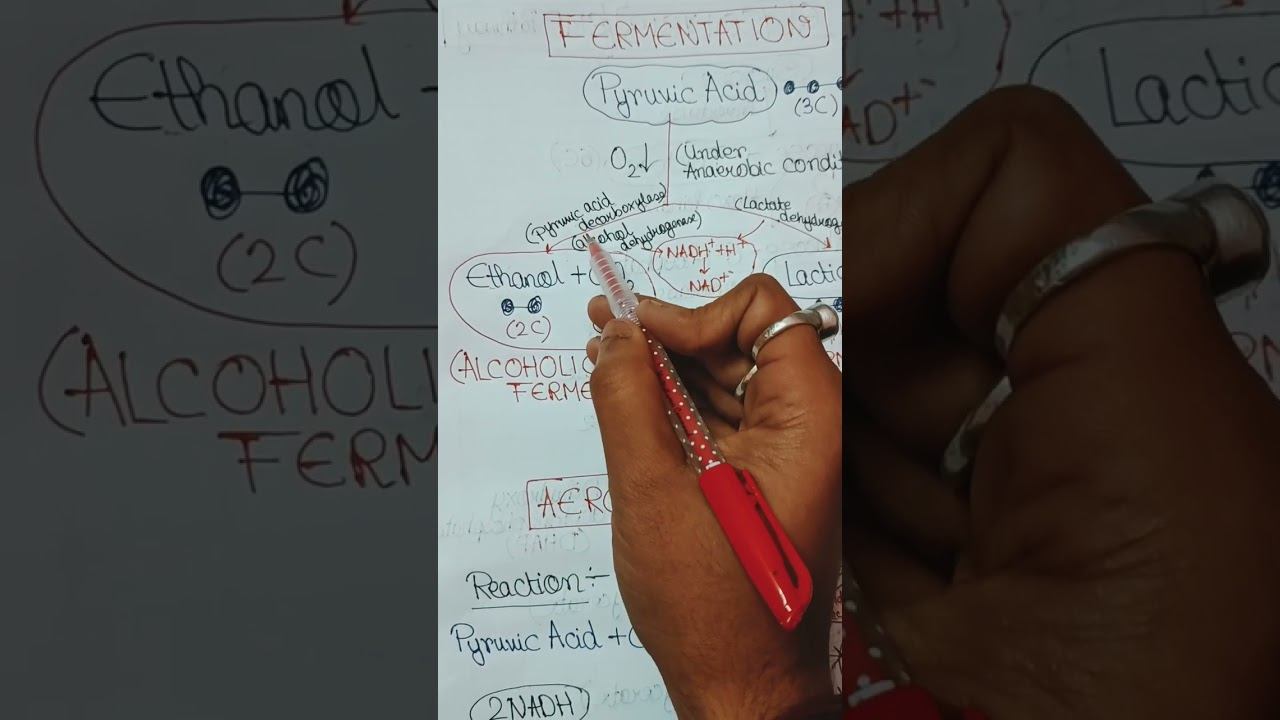 FERMENTATION
Pyruvic Acid
(3C)
O2↓ (Under
Anaerobic condit
(Pyruvic acid
decarboxylase)
(alcohol
dehydrogenase)
(Lactate
dehydrogena
NADH+ + H+
↓
NAD+
Ethanol + CO2
(2C)
Lactic
(ALCOHOLIC
FERME
AERO
Reaction :-
Pyruvic Acid +
2NADH
Ethanol +
(2C)
(ALCOHOLI
FERM
+H
AD+
Lactic